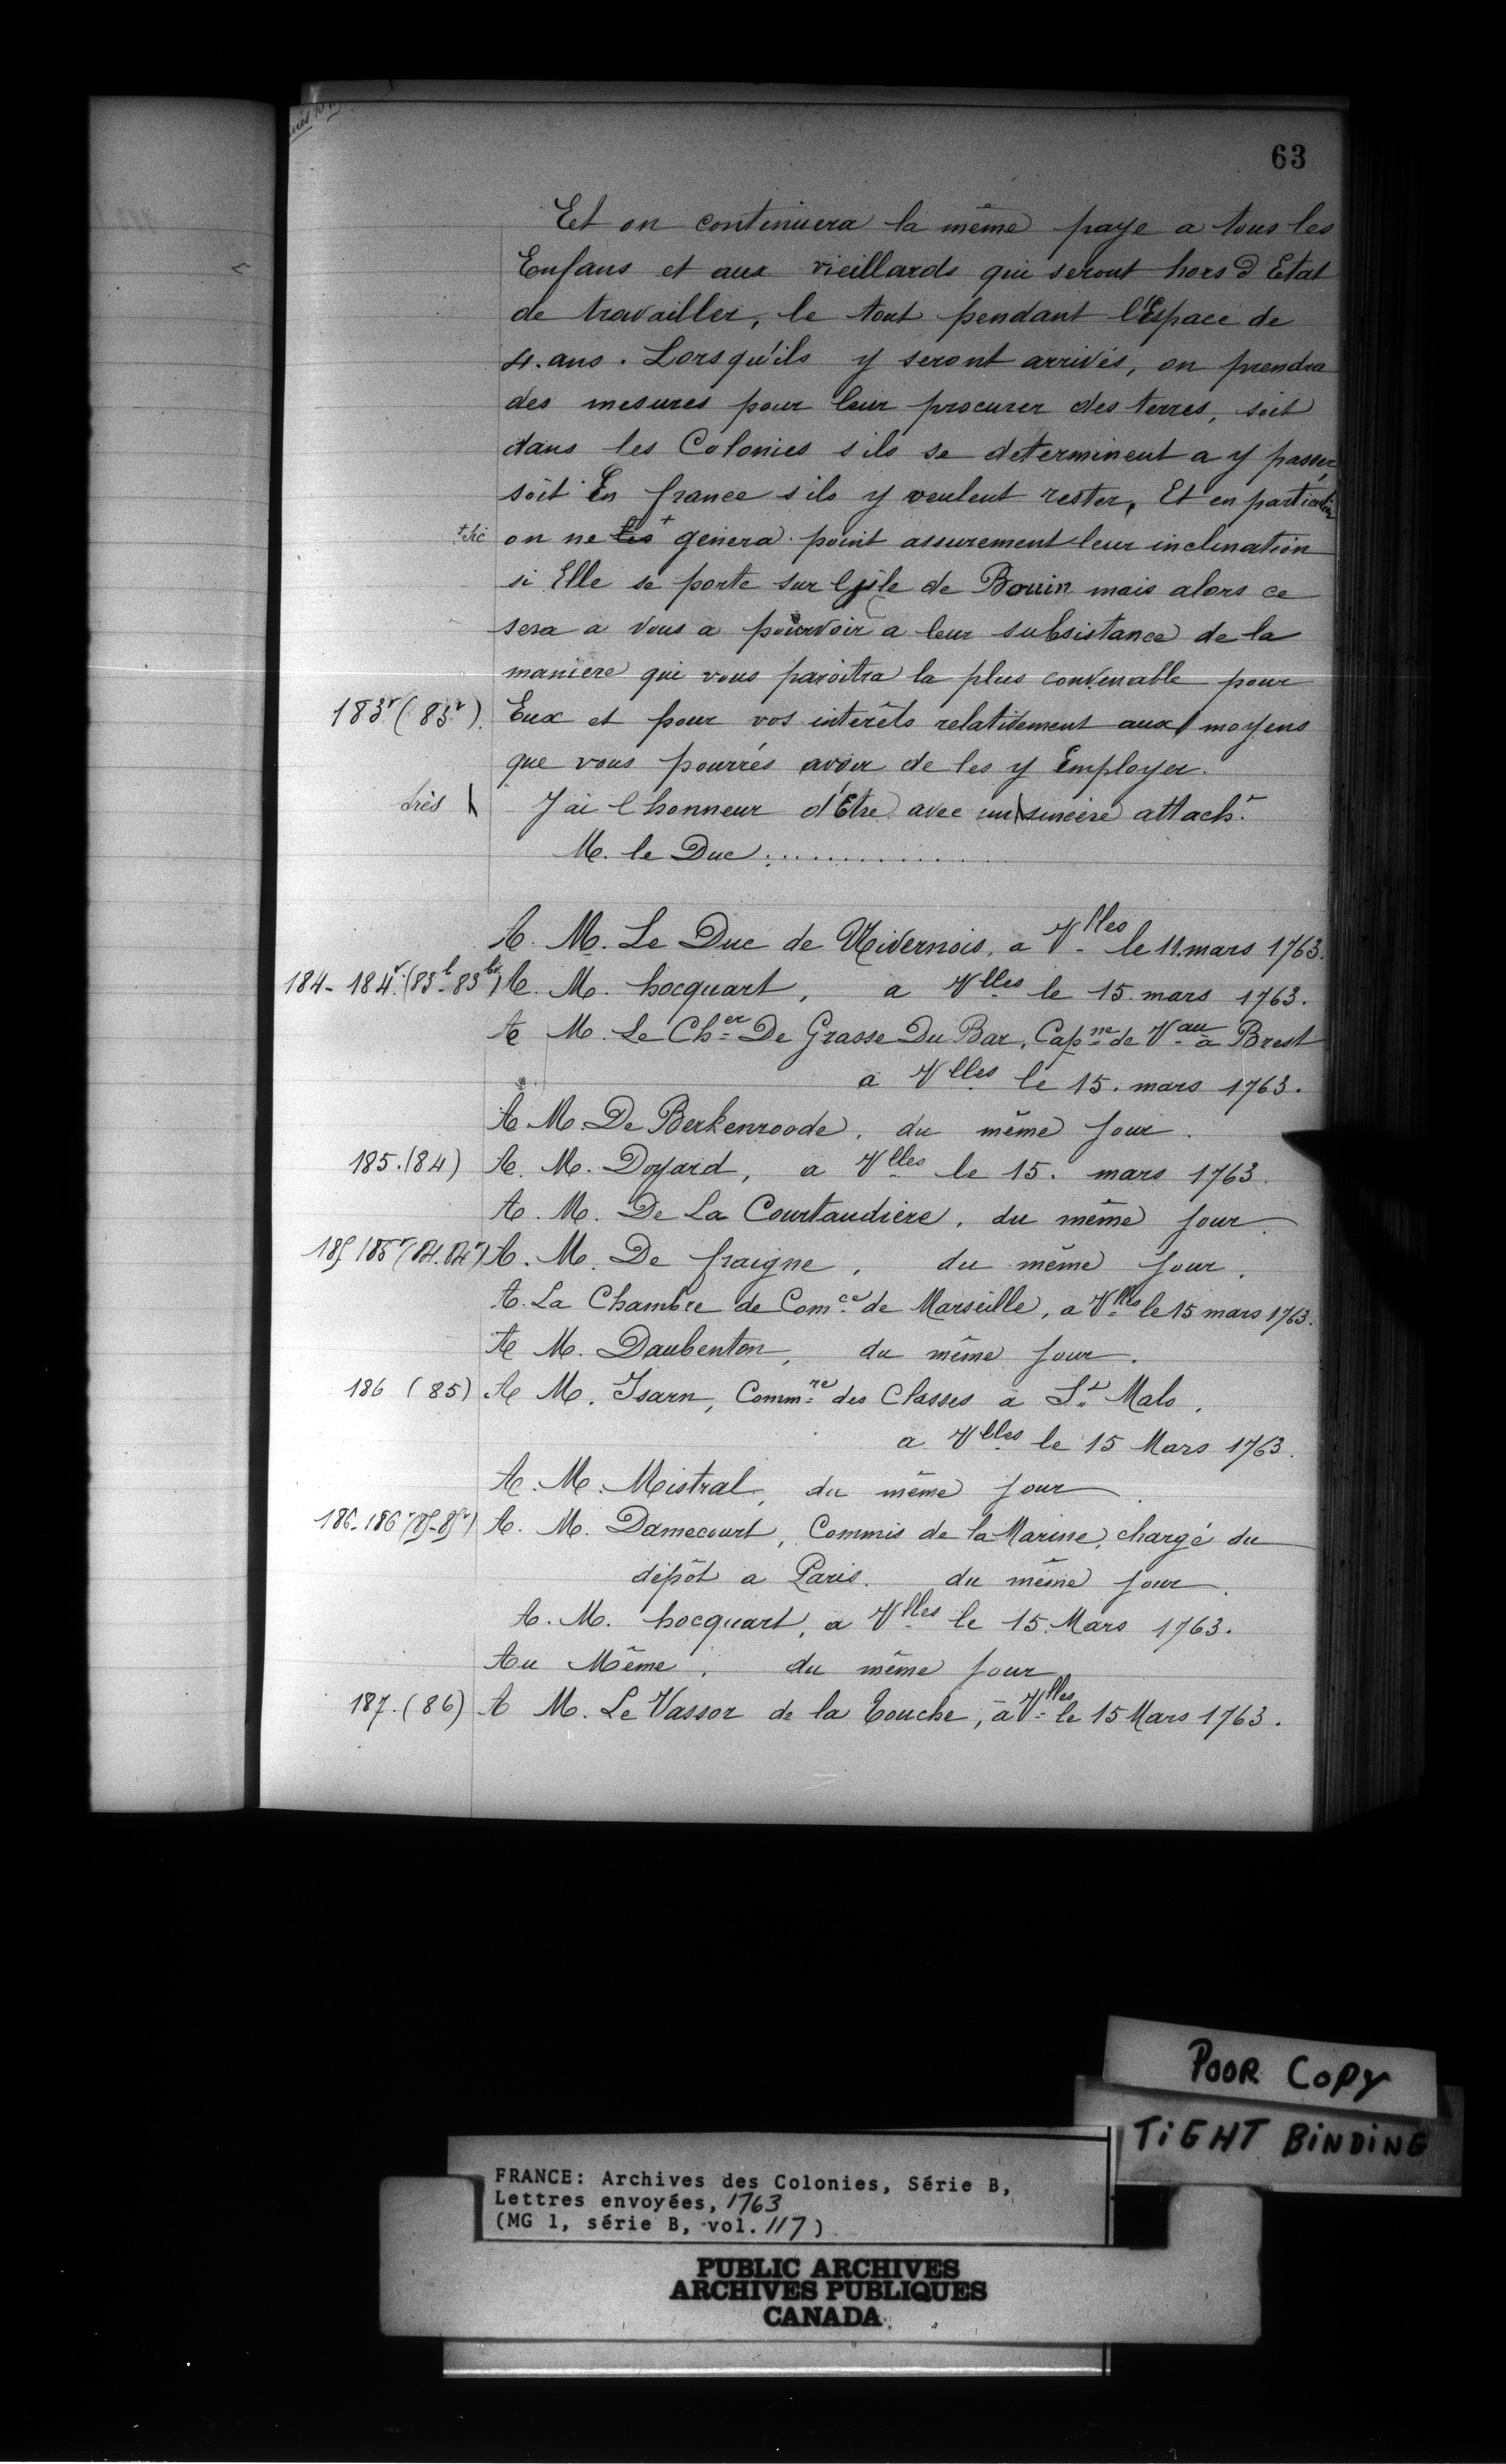 63
Et on continuera la même paye a tous les
Enfans et aux vieillards qui seront hors d Etat
de travailler, le tout pendant l'Espace de
4. ans. Lorsqu'ils y seront arrivés, on prendra
des mesures pour leur procurer des terres, soit
dans les Colonies s ils se determinent a y passer
soit En france s ils y veulent rester, Et en particulier
+ sic on ne les + génera point assurement leur inclination
si Elle se porte sur l'isle de Bouin mais alors ce
sera a vous a pourvoir a leur subsistance de la
maniere qui vous paroitra la plus convenable pour
183v (83v). Eux et pour vos interêts relativement aux moyens
que vous pourrés avoir de les y Employer.
très J ai l honneur d'Etre avec un sincere attacht
M. le Duc ................
A. M. Le Duc de Nivernois, a Vlles le 11. mars 1763.
184- 184v. (83b- 83bv) A. M. hocquart, a Vlles le 15. mars 1763.
A M. Le Cher De Grasse Du Bar, Capne de Vau a Brest
a Vlles le 15. mars 1763.
A M. De Berkenroode, du même Jour.
185. (84) A. M. Doyard, a Vlles le 15. mars 1763.
A. M. De La Courtaudiere, du même Jour.
185 185v (84. 84v) A. M. De fraigne, du même Jour.
A. La Chambre de Comce de Marseille, a Vlles le 15 mars 1763.
A M. Daubenton, du même Jour.
186 (85) A M. Isarn, Commre des Classes a St Malo,
a Vlles le 15 Mars 1763.
A. M. Mistral, du même Jour.
186- 186v (85- 85v) A. M. Damecourt, Commis de la Marine, chargé du
dépôt a Paris. du même Jour.
A. M. hocquart, a Vlles le 15. Mars 1763.
Au Même. du même Jour
187. (86) A M. Le Vassor de la Touche, à Vlles le 15 Mars 1763.
POOR COPY
TIGHT BINDING
FRANCE: Archives des Colonies, Série B,
Lettres envoyées, 1763
(MG 1, série B, vol. 117)
PUBLIC ARCHIVES
ARCHIVES PUBLIQUES
CANADA